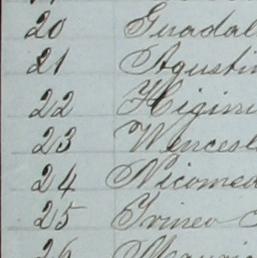 20 Guadal
21 Agustin
22 Higini
23 Wencesl
24 Nicomed
25 Irineo
26 Mauri